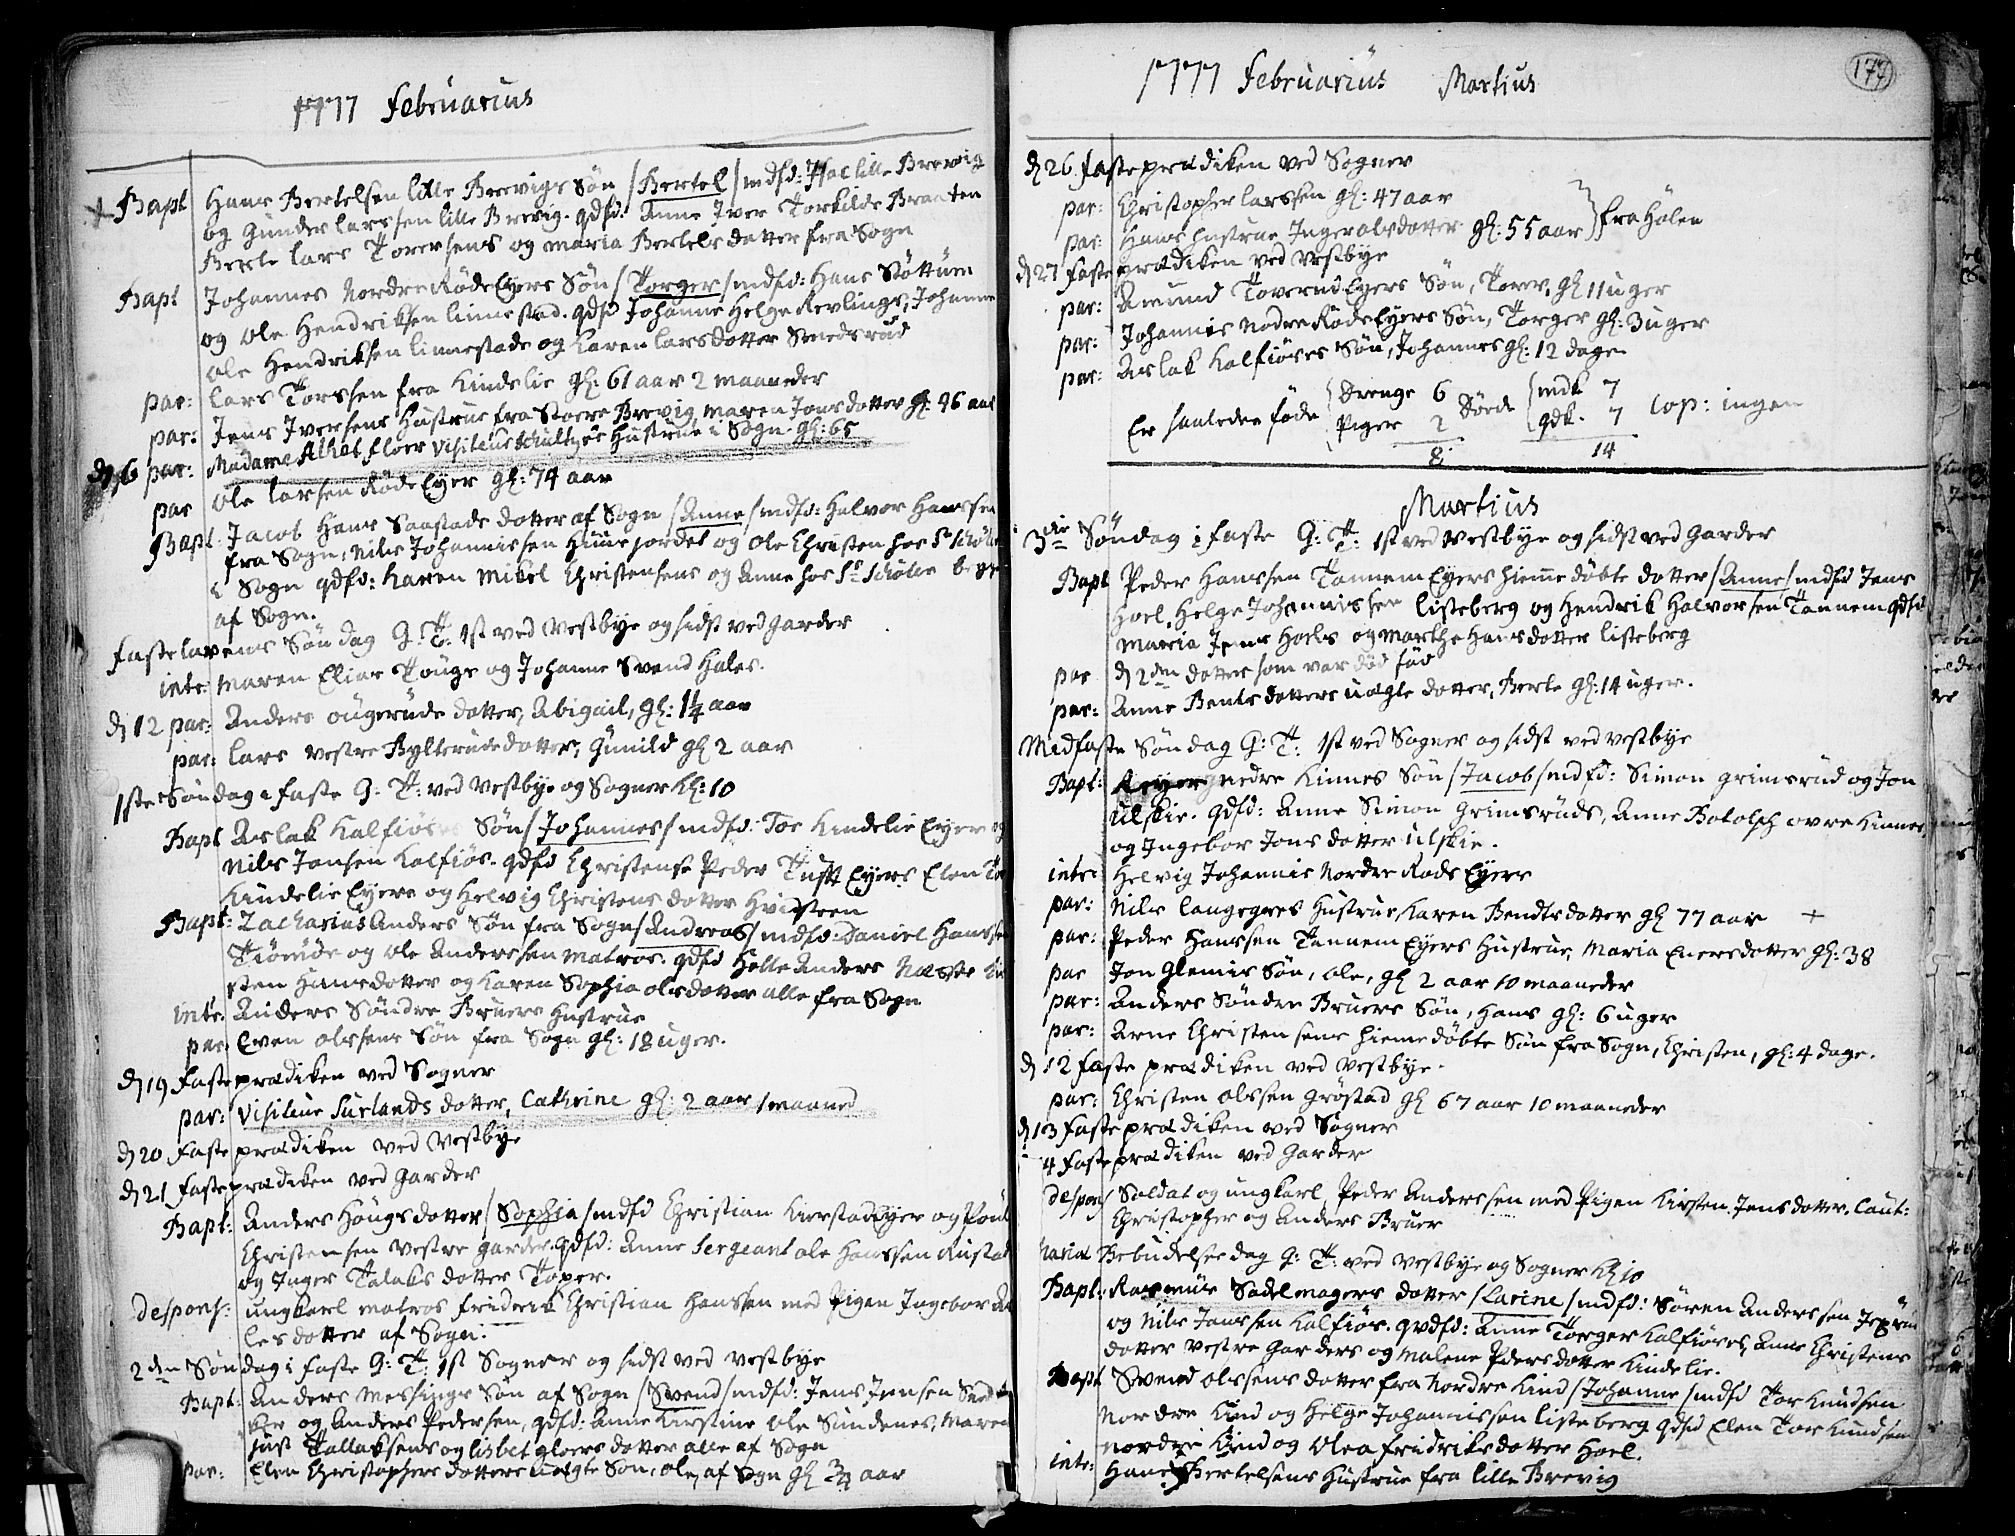 1777 Februarius
Bapt Hans Bertelsen lille Brevigs Søn /Bertel/ mdfd: Brevig
og Gunder larssen lille Brevig. qdfd: Anne Iver Torkilds Braaten
Berte lars Torersens og Maria Bertels datter fra Sogn
Bapt Johannes Nordre Røde Eyers Søn /Torger/ mdfd: Hans Støttum
og Ole Hendriksen linnestad. qdfd Johanne Helge Revlings, Johanne
Ole Hendriksen linnestads og Karen larsdatter Smedsrud
par: lars Torssen fra Kindelie gl: 61 aar 2 maaneder
par: Jens Iversens Hustrue fra Stoere Brevig Maren Jonsdatter gl: 46 aar
d 6 par: Madame Alhed Floer Visiteur Schultzes Hustrue i Sogn gl: 65
par Ole larsen Røde Eyer gl: 74 aar
Bapt: Jacob Hans Saastads datter af Sogn /Anne/ mdfd: Halvor Hanssen
fra Sogn, Nils Johannissen Huuejordet og Ole Christen hos Sr
i Sogn qdfd: Karen Mikel Christensens og Anne hos Sr Schøller begge
af Sogn.
Fastelavens Søndag G: T: 1st ved Vestbye og sidst ved Garder
intr: Maren Elias Touge og Johanne Svend Holes.
d 12 par: Anders ougerüds datter, Abigail, gl: 1 1/4 aar
par: lars vestre Bylterüds datter, Gunild gl 2 aar
1ste Søndag i Faste G: T: ved Vestbye og Sogner Kl: 10
Bapt Aslak Kalfiøs Søn /Johannes/ mdfd: Tor Kindelie Eyer og
Nils Jansen Kalfiøs. qdfd Christense Peder Tuft Eyers Elen Tor
Kindelie Eyers og Helvig Christens datter Hvidsteen
Bapt: Zacharias Anders Søn fra Sogn /Andreas/ mdfd: Daniel Hanssen
og Ole Anderssen matros. qdfd Helle Anders
sten Hansdatter og Karen Sophia olsdatter alle fra Sogn
intr: Anders Søndre Bruers Hustrue
par: Even olssens Søn fra Sogn gl: 18 uger.
d 19 Fasteprædiken ved Sogner
par: Visiteur Surlands datter, Cathrine gl: 2 aar 1 maaned
d 20 Fasteprædiken ved Vestbye
d 21 Fasteprædiken ved Garder
Bapt: Anders Hougs datter /Sophia/ mdfd Christian Kierstad Eyer og Poul
Christensen vestre Garder. qdfd: Anne Sergeant ole Hanssen Rustad
og Inger Talaks datter Toper.
despons: ungkarl matros Friderik Christian Hanssen med Pigen Ingebor
les datter af Sogn.
2den Søndag i Faste G: T: 1st Sogner og sidst ved Vestbye
Bapt: Anders Messings Søn af Sogn /Svend/ mdfd: Jens Jensen
og Anders Pedersen, qdfd: Anne Kirstine Ole Sundenes, Maren
just Tallaksens og lisbet gloersdatter alle af Sogn
par: Elen Christophers datters uægte Søn, Ole, af Sogn gl 3/4 aar
1777 Februarius Martius
177
d 26 Fasteprædiken ved Sogner
par: Christopher larssen gl: 47 aar
par: Hans Hustrue Inger olsdatter gl: 55 aar } fra Hølen
d 27 Fasteprædiken ved Vestbye
par: Amund Toverud Eyers Søn, Torer, gl 11 uger
par: Johannis Nodre Røde Eyers Søn, Torger gl: 3 uger
par: Aslak Kalfiøses Søn, Johannes gl: 12 dage
Er saaledes føde { Drenge 6 Døde { mdk 7 Cop: ingen
Piger 2 qdk. 7
8 14
Martius
3die Søndag i Faste G: T: 1st ved Vestbye og sidst ved Garder
Bapt Peder Hanssen Tannem Eyers hiemmedøbte datter /Anne/ mdfd Jens
Hoel, Helge Johannissen listeberg og Hendrik Halvorsen Tannem qdfd
Maria Jens Hoels og Marthe Hansdatter listeberg
par d 2den datter som var død fød
par: Anne Bentsdatters uægte datter, Berte gl: 14 uger.
Midfaste Søndag G: T: 1st ved Sogner og sidst ved Vestbye
Bapt: Reyer nedre Kinnes Søn /Jacob/ mdfd: Simon Grimsrüd og Jon
Ulskie. qdfd: Anne Simon Grimsrüds, Anne Botolph øvre Kinnes,
og Ingebor Jons datter ulskie.
intr: Helvig Johannis Nordre Røds Eyers
par: Nils langegres Hustrue Karen Bendtsdatter gl 77 aar +
par: Peder Hanssen Tannem Eyers Hustrue, Maria Enersdatter gl: 38
par Jon Glemis Søn, Ole, gl 2 aar 10 maaneder
par: Anders Søndre Bruers Søn, Hans gl: 6 uger
par: Arne Christensens hiemedøbte Søn fra Sogn, Christen, gl: 4 dage.
d 12 Fasteprædiken ved Vestbye.
par: Christen olssen Grøstad gl 67 aar 10 maaneder
d 13 Fasteprædiken ved Sogner
4 Fasteprædiken ved Garder
despons Soldat og ungkarl, Peder Anderssen med Pigen Kirsten Jensdatter. Caut:
Christopher og Anders Bruer
Mariæ Bebudelses dag G: T: ved Vestbye og Sogner Kl 10
Bapt: Rasmüs Sadelmagers datter /Larine/ mdfd: Søren Anderssen
og Nils Janssen Kalfiøs. qvdfd: Anne Torger Kalfiøses, Anne Christens
datter vestre Garders og Malene Pedersdatter Kindelie.
Bapt Svend olssens datter fra Nordre Kind /Johanne/ mdfd Tor Knudsen
Nordre Kind og Helge Johannissen listeberg qdfd Elen Tor Knudsen
nordre Kind og Olea Fridriksdatter Hoel.
intr: Hans Bertelsens Hustrue fra lille Brevig